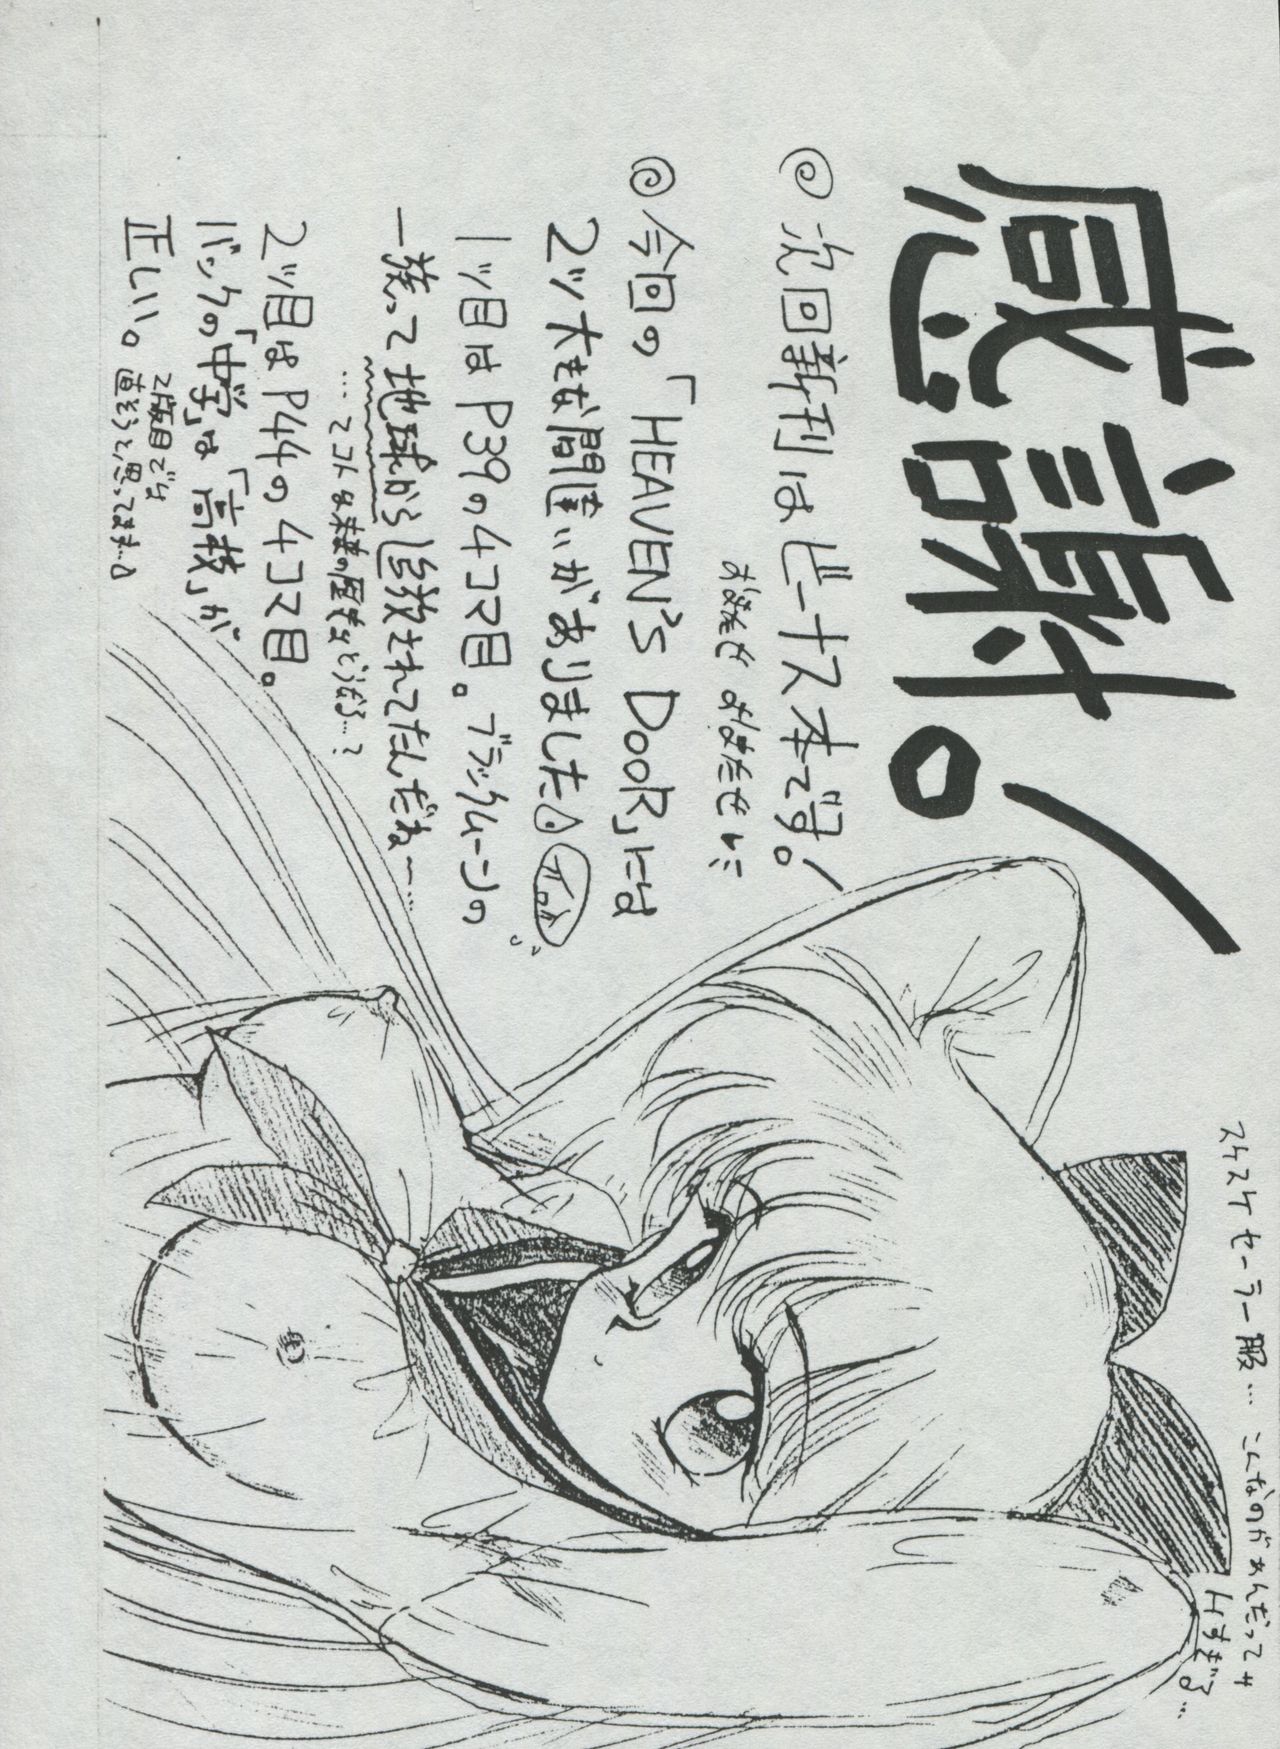 感謝。
◎次回新刊はビーナス本です。
おまたせ
◎今回の「HEAVEN's DooR」には
2ッ大きな間違いがありました
1ッ目は P39の4コマ目。ブラックムーンの
一族って地球から追放されてたんだねー…
…ってコトは未来の歴史はどうなる…?
2ッ目は P44の4コマ目。
バックの「中学」は「高校」が
正しい。
2版目では
直そうと思ってます
スケスケセーラー服… こんなのがあんだって
Hすぎる…